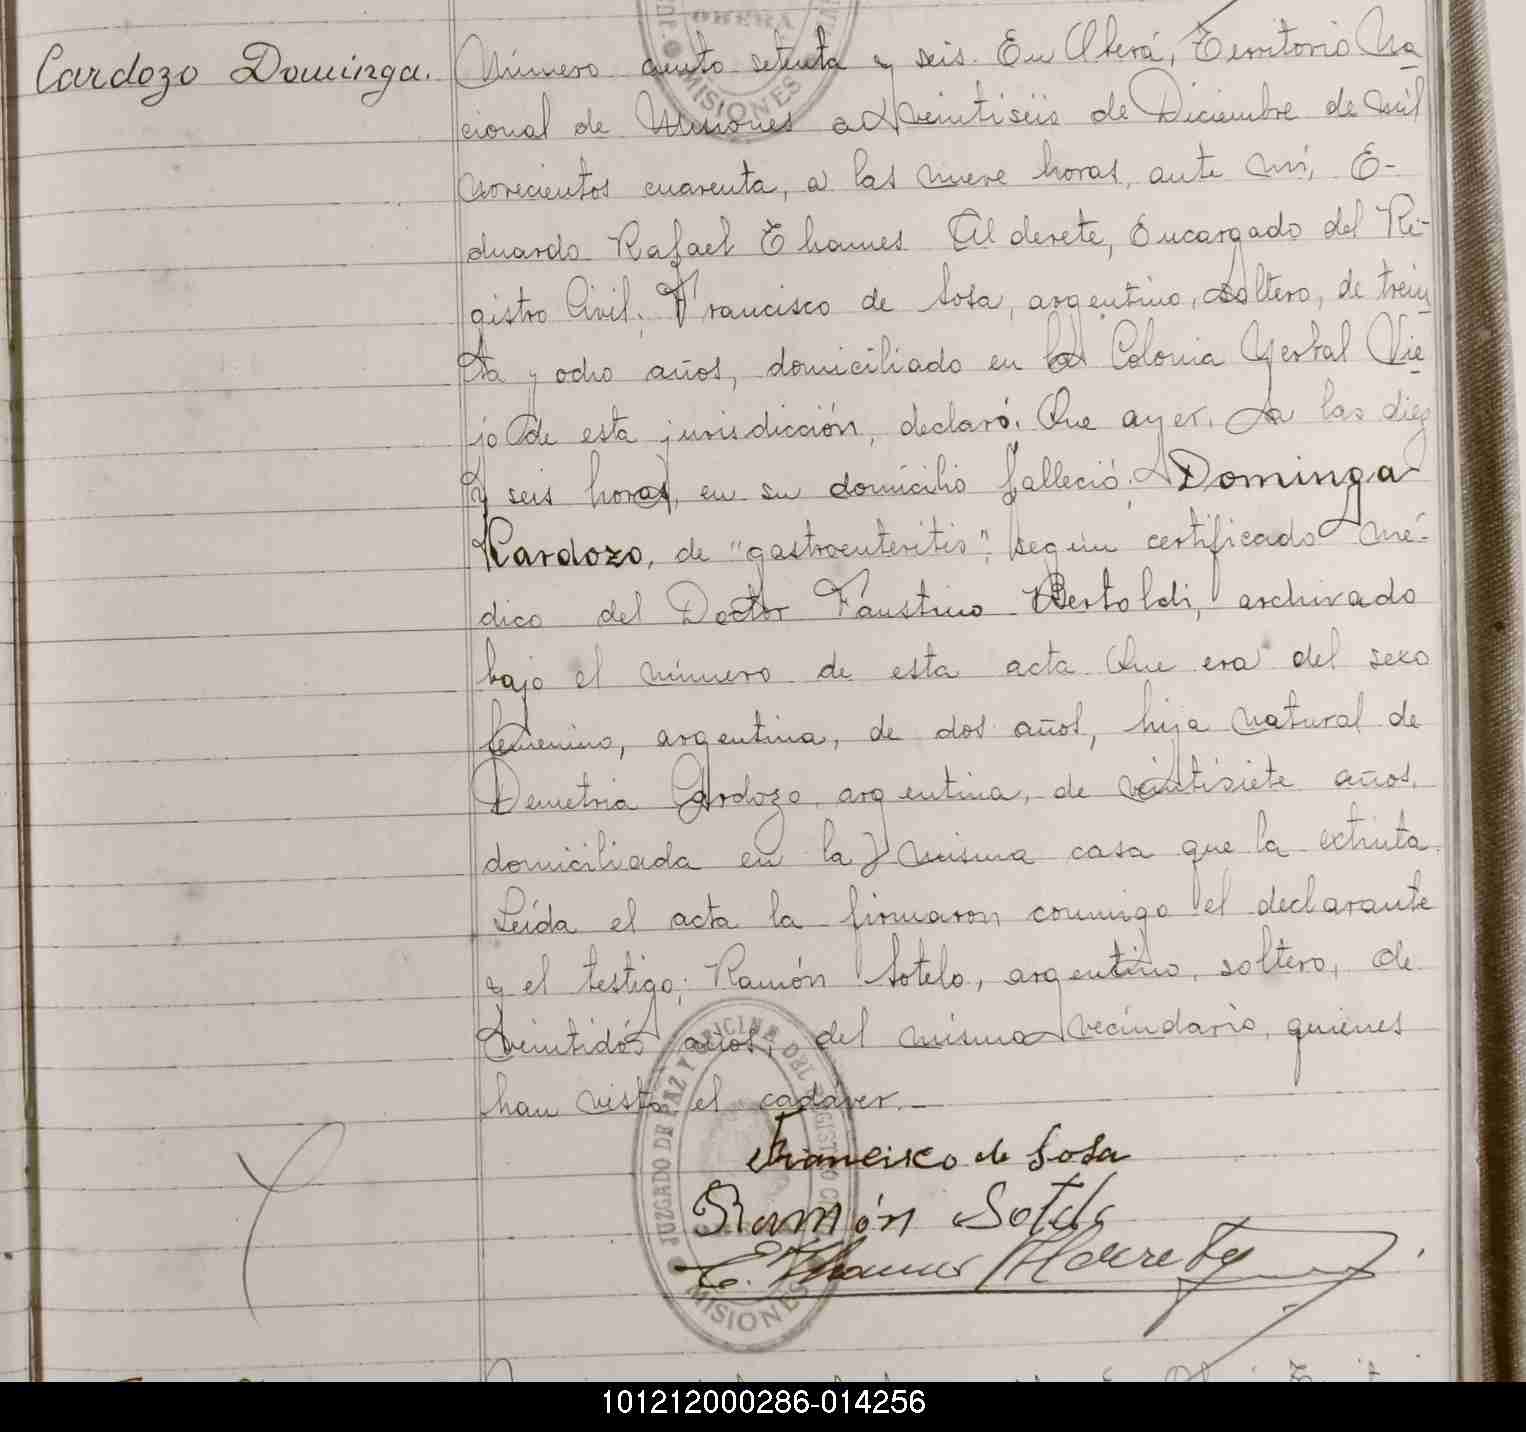 OBERA
MISIONES
Cardozo Dominga.
Número ciento setenta y seis. En Oberá, Territorio Na
cional de Misiones a veintiséis de Diciembre de mil
novecientos cuarenta, a las nueve horas, ante mí, E-
duardo Rafael Thames Alderete, Encargado del Re-
gistro Civil; Francisco de Sosa, argentino, soltero, de trein
ta y ocho años, domiciliado en la Colonia Yerbal Vie
jo de esta jurisdicción, declaró: Que ayer, a las diez
y seis horas, en su domicilio falleció: Dominga
Cardozo, de "gastroenteritis", según certificado mé-
dico del Doctor Faustino Bertoldi, archivado
bajo el número de esta acta. Que era del sexo
femenino, argentina, de dos años, hija natural de
Demetria Cardozo, argentina, de veintisiete años,
domiciliada en la misma casa que la extinta.
Leída el acta la firmaron conmigo el declarante
y el testigo; Ramón Sotelo, argentino, soltero, de
veintidós años, del mismo vecindario, quienes
han visto el cadáver.-
Francisco de Sosa
Ramón Sotelo
E. Thames Alderete
JUZGADO DE PAZ Y OFICINA DEL REGISTRO
MISIONES
101212000286-014256